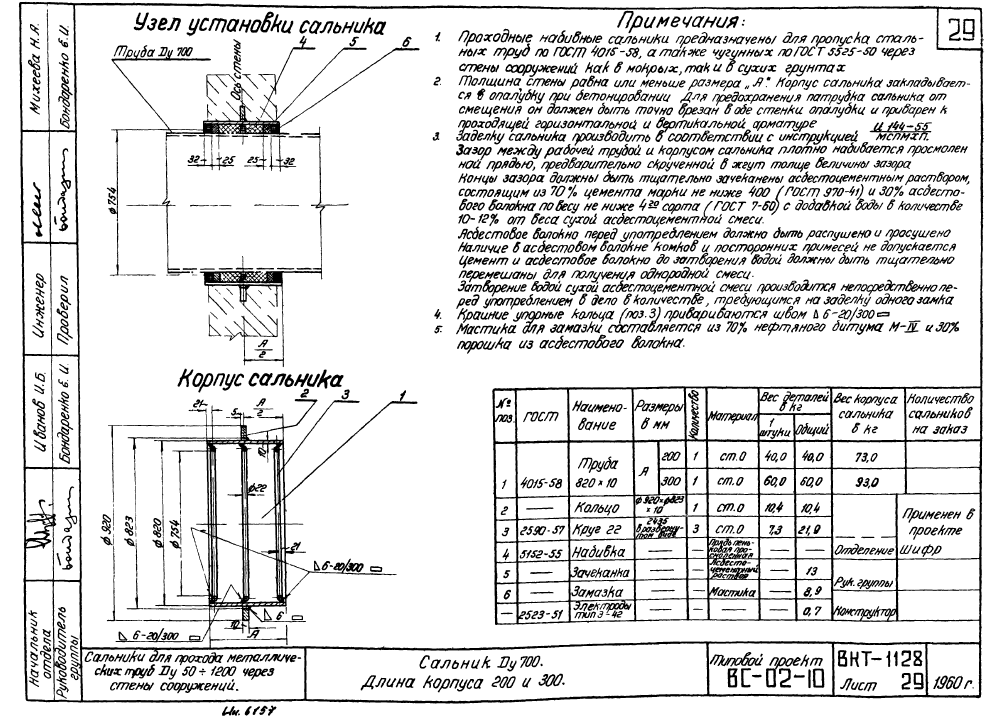 Узел установки сальника
Труба Dу 700
Ось стены
4
5
6
32
25
25
32
ф754
А
2
Корпус сальника
21
5
А
2
2
3
1
10
ф22
ф920
ф823
ф820
ф754
21
6-20/300
6
10
6-20/300
А
Примечания:
29
1. Проходные набивные сальники предназначены для пропуска сталь-
ных труб по ГОСТ 4015-58, а также чугунных по ГОСТ 5525-50 через
стены сооружений как в мокрых, так и в сухих грунтах
2. Толщина стены равна или меньше размера „А". Корпус сальника закладывает-
ся в опалубку при бетонировании Для предохранения патрубка сальника от
смещения он должен быть точно врезан в обе стенки опалубки и приварен к
проходящей горизонтальной и вертикальной арматуре
3. Заделку сальника производить в соответствии с инструкцией И 144-55 МСПМХП.
Зазор между рабочей трубой и корпусом сальника плотно набивается просмолен
ной прядью, предварительно скрученной в жгут толще величины зазора
Концы зазора должны быть тщательно зачеканены асбестоцементным раствором,
состоящим из 70% цемента марки не ниже 400 (ГОСТ 970-41) и 30% асбесто-
вого волокна по весу не ниже 4го сорта (ГОСТ 7-60) с добавкой воды в количестве
10-12% от веса сухой асбестоцементной смеси.
Асбестовое волокно перед употреблением должно быть распушено и просушено
Наличие в асбестовом волокне комков и посторонних примесей не допускается
Цемент и асбестовое волокно до затворения водой должны быть тщательно
перемешаны для получения однородной смеси.
Затворение водой сухой асбестоцементной смеси производится непосредственно пе-
ред употреблением в дело в количестве, требующимся на заделку одного замка
4. Крайние упорные кольца (поз. 3) привариваются швом 6-20/300
5. Мастика для замазки составляется из 70% нефтяного битума М-IV и 30%
порошка из асбестового волокна.
№ поз. ГОСТ Наимено-вание Размеры в мм Количество Материал Вес деталей в кг 1 штуки Общий Вес корпуса сальника в кг Количество сальников на заказ
1 4015-58 Труба 820×10 А 200 1 ст.0 40,0 40,0 73,0
300 1 ст.0 60,0 60,0 93,0
2 — Кольцо ф920×ф823 ×10 1 ст.0 10,4 10,4
3 2590-57 Круг 22 2435 3 ст.0 7,3 21,9
Применен в проекте
4 5152-55 Набивка — — — — Отделение Шифр
5 — Зачеканка — — Асбесто-цементный раствор — 13
6 — Замазка — — Мастика — 8,9 Рук. группы
— 2523-51 Электроды тип Э-42 — — — — 0,7 Конструктор
Сальники для прохода металличе-
ских труб Dу 50÷1200 через
стены сооружений.
Сальник Dу 700.
Длина корпуса 200 и 300.
Типовой проект
ВС-02-10
ВКТ-1128
Лист 29
1960г.
Ин. 6157
Михеева Н.Я.
Бондаренко Е.И.
Инженер
Проверил
Иванов И.Б.
Бондаренко Е.И.
Начальник отдела
Руководитель группы